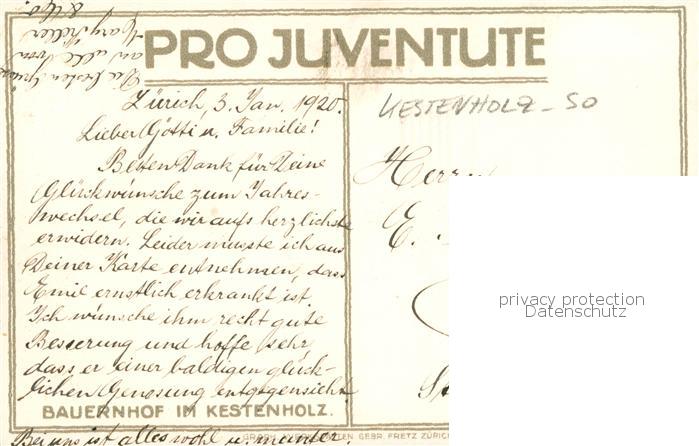 PRO JUVENTUTE
Zürich, 3. Jan. 1920.
Lieber Götti u. Familie!
Besten Dank für Deine
Glückwünsche zum Jahres-
wechsel, die wir aufs herzlichste
erwidern. Leider musste ich aus
Deiner Karte entnehmen, dass
Emil ernstlich erkrankt ist.
Ich wünsche ihm recht gute
Besserung und hoffe sehr
dass er einer baldigen glück-
lichen Genesung entgegensieht.
BAUERNHOF IM KESTENHOLZ.
Bei uns ist alles wohl u. munter.
Die besten Grüsse
an alle von
KESTENHOLZ - SO
Herrn
E.
privacy protection
Datenschutz
GEBR. FRETZ ZÜRICH